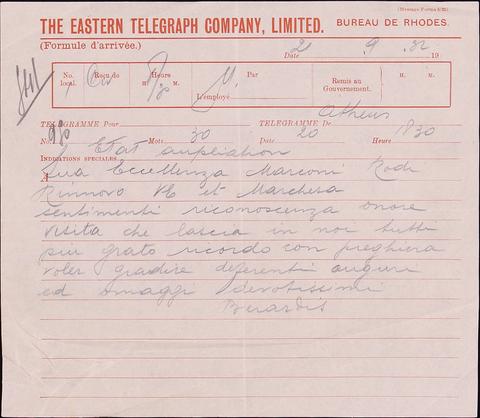 (Message Form
THE EASTERN TELEGRAPH COMPANY, LIMITED. BUREAU DE RHODES.
(Formule d'arrivée.)
Date 2 9 32 19
No. local. Reçu de Heure H. M. Par Remis au Gouvernement. H. M.
L'employé
Athens
TELEGRAMME Pour TELEGRAMME De
No. 980 Mots 30 Date 20 Heure 1830
INDICATIONS SPECIALES. Etat ampliation
A Sua Eccellenza Marconi Rodi
Rinnovo VE et Marchesa
sentimenti riconoscenza onore
visita che lascia in noi tutti
piu grato ricordo con preghiera
voler gradire deferenti auguri
ed omaggi devotissimi
Berardis